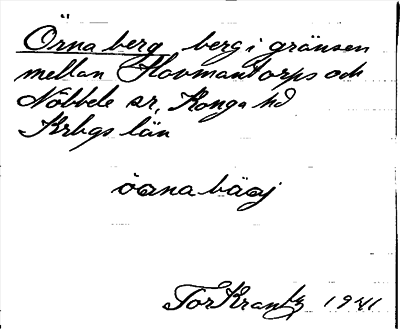 Örna berg berg i gränsen
mellan Hovmantorps och
Nöbbele sr, Konga hd
Krbgs län
öɷna bäɷj
Tor Krantz 1941